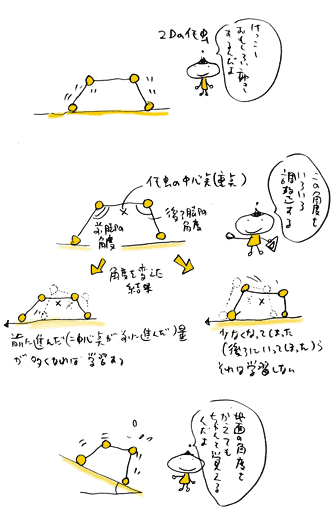 2Dの仮虫
けっこー
おもしろい動き
するんだよ
仮虫の中心点(重点)
前脚の
角度
後ろ脚の
角度
この角度を
いろいろ
調ねする
角度を変えた
結果
前に進んだ(=中心点が前に進んだ)量
が多くなれば 学習する
少なくなってしまった
(後ろにいってしまった)ら
それは学習しない
地面の角度を
かえても
ちゃんと覚える
んだよ